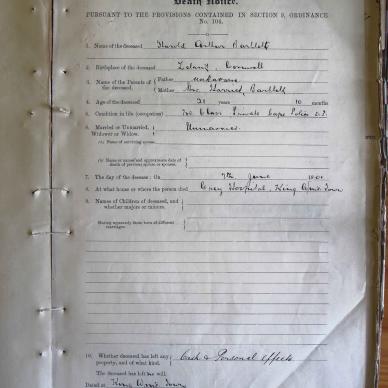 Death Notice.
PURSUANT TO THE PROVISIONS CONTAINED IN SECTION 9, ORDINANCE
No. 104.
1. Name of the deceased Harold Arthur Bartlett
2. Birthplace of the deceased Cornwall
3. Name of the Parents of the deceased. Father unknown
Mother Mrs Harriet Bartlett
4. Age of the deceased 21 years 10 months
5. Condition in life (occupation) Class Private Cape Police
6. Married or Unmarried, Widower or Widow. Unmarried
(a) Name of surviving spouse.
(b) Name or names and approximate date of death of previous spouse or spouses.
7. The day of the decease: On 7th June
8. At what house or where the person died Grey Hospital, King Wms Town
9. Names of Children of deceased, and whether majors or minors.
Stating separately those born of different marriages.
10. Whether deceased has left any property, and of what kind. Cash & Personal Effects
The deceased has left no will
Dated at King Wms Town